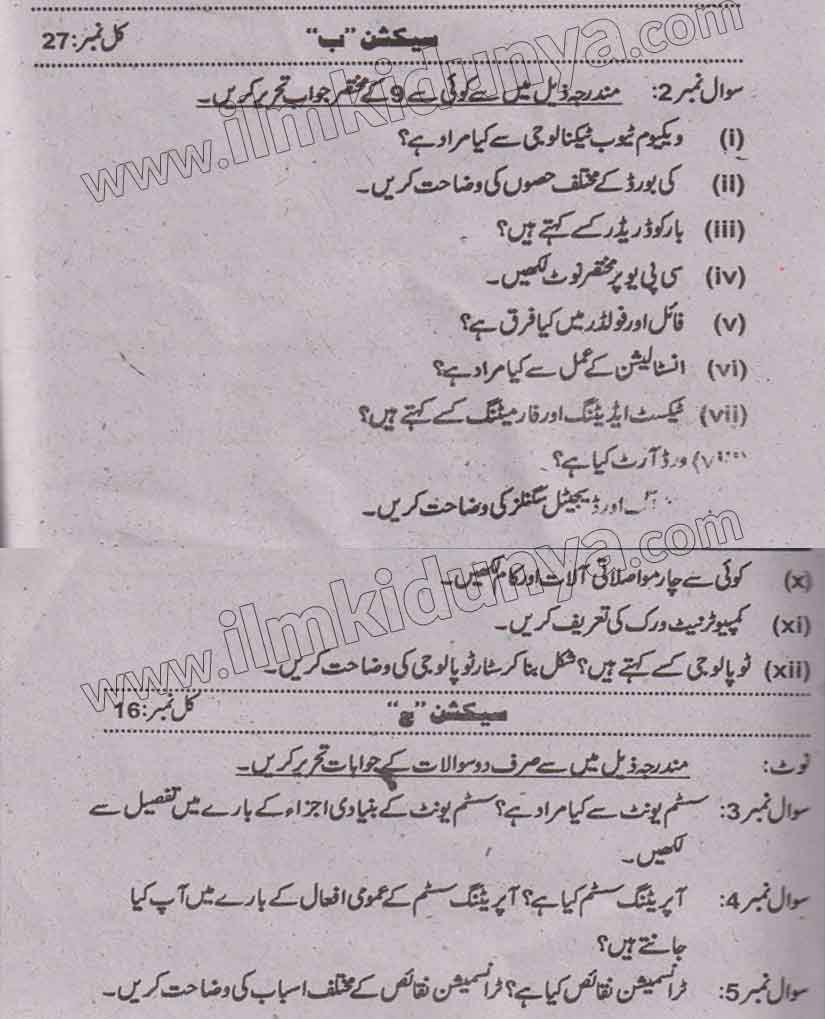 سیکشن "ب" کل نمبر:27
سوال نمبر 2: مندرجہ ذیل میں سے کوئی سے 9 کے مختصر جواب تحریر کریں۔
(i) ویکیوم ٹیوب ٹیکنالوجی سے کیا مراد ہے؟
(ii) کی بورڈ کے مختلف حصوں کی وضاحت کریں۔
(iii) بارکوڈ ریڈر کسے کہتے ہیں؟
(iv) سی پی یو پر مختصر نوٹ لکھیں۔
(v) فائل اور فولڈر میں کیا فرق ہے؟
(vi) انسٹالیشن کے عمل سے کیا مراد ہے؟
(vii) ٹیکسٹ ایڈیٹنگ اور فارمیٹنگ کسے کہتے ہیں؟
ورڈ آرٹ کیا ہے؟
اور ڈیجیٹل سگنلز کی وضاحت کریں۔
(x) کوئی سے چار مواصلاتی آلات اور کام لکھیں۔
(xi) کمپیوٹر نیٹ ورک کی تعریف کریں۔
(xii) ٹوپالوجی کسے کہتے ہیں؟ شکل بنا کر سٹار ٹوپالوجی کی وضاحت کریں۔
سیکشن "ج" کل نمبر:16
نوٹ: مندرجہ ذیل میں سے صرف دو سوالات کے جوابات تحریر کریں۔
سوال نمبر 3: سسٹم یونٹ سے کیا مراد ہے؟ سسٹم یونٹ کے بنیادی اجزاء کے بارے میں تفصیل سے
لکھیں۔
سوال نمبر 4: آپریٹنگ سسٹم کیا ہے؟ آپریٹنگ سسٹم کے عمومی افعال کے بارے میں آپ کیا
جانتے ہیں؟
سوال نمبر 5: ٹرانسمیشن نقائص کیا ہے؟ ٹرانسمیشن نقائص کے مختلف اسباب کی وضاحت کریں۔
www.ilmkidunya.com
www.ilmkidunya.com